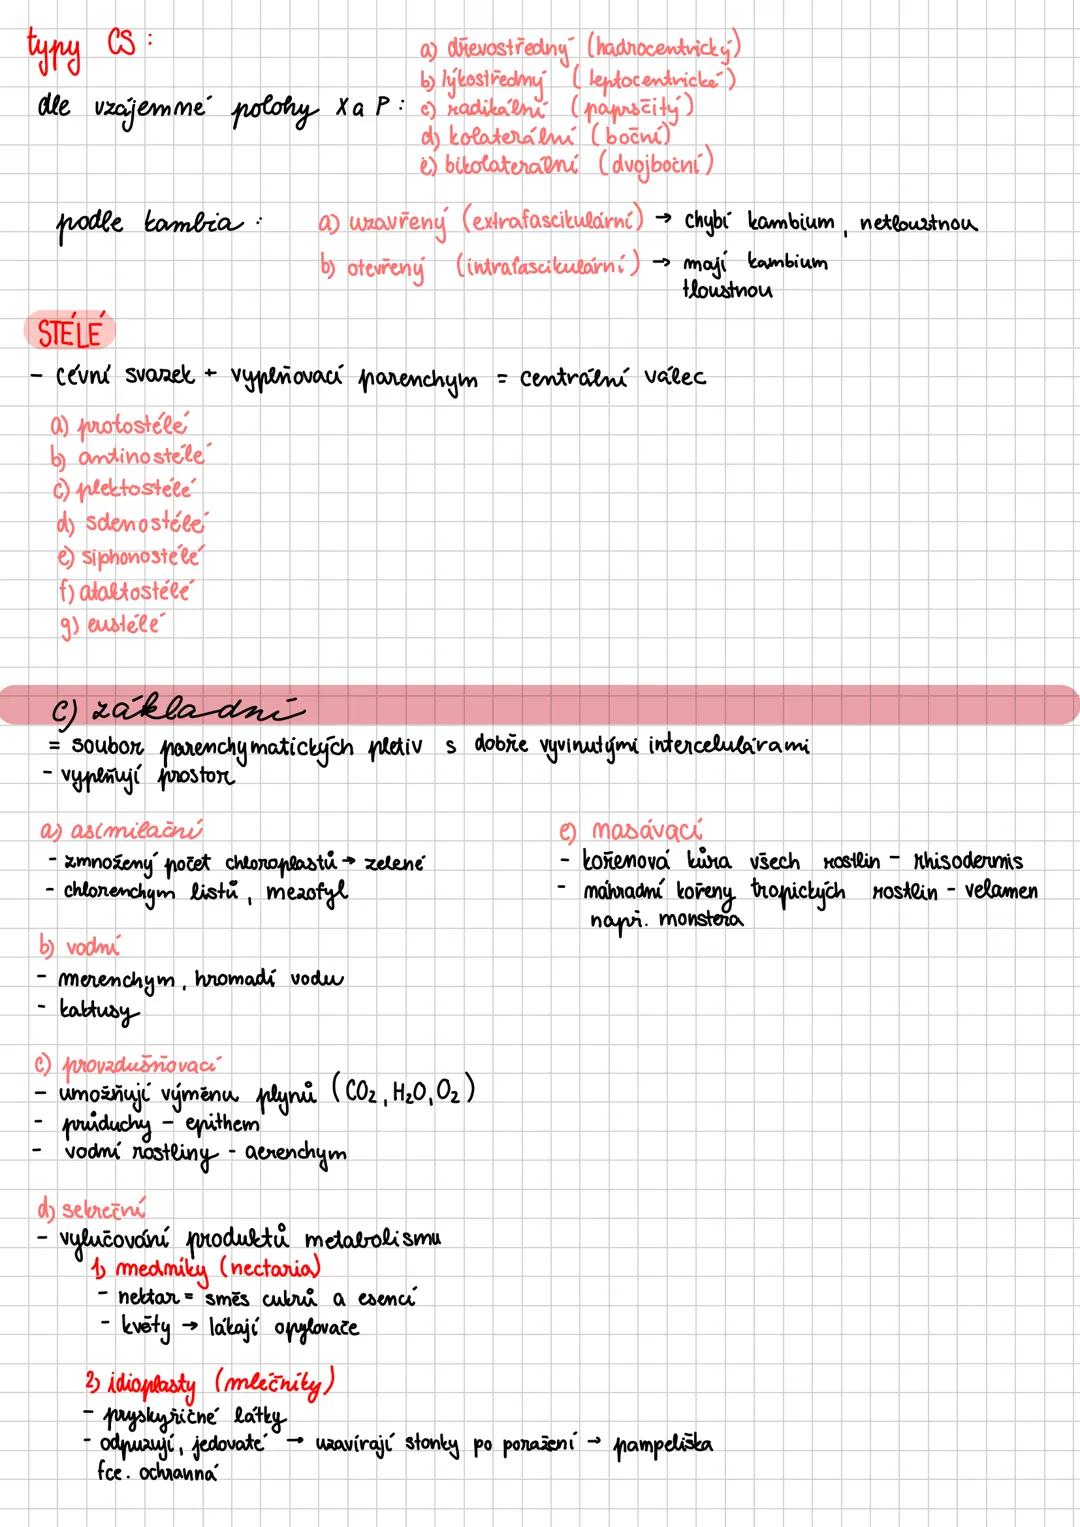 typy CS :
dle vzájemné polohy X a P :
a) dřevostředný (hadrocentrický)
b) lýkostředný (leptocentrické)
c) radikální (paprsčitý)
d) kolaterální (boční)
e) bikolaterální (dvojboční)
podle kambia :
a) uzavřený (extrafascikulární) → chybí kambium, netloustnou
b) otevřený (intrafascikulární) → mají kambium
tloustnou
STÉLÉ
- cévní svazek + vyplňovací parenchym = centrální válec
a) protostélé
b) antinostélé
c) plektostélé
d) sdenostélé
e) siphonostélé
f) ataktostélé
g) eustélé
c) základní
= soubor parenchymatických pletiv s dobře vyvinutými intercelulárami
- vyplňují prostor
a) asimilační
- zmnožený počet chloroplastů → zelené
- chlorenchym listů, mezofyl
b) vodní
- merenchym, hromadí vodu
- kaktusy
c) provzdušňovací
- umožňují výměnu plynů (CO2, H2O, O2)
- průduchy - epithem
- vodní rostliny - aerenchym
d) sekreční
- vylučování produktů metabolismu
1) medníky (nectaria)
- nektar = směs cukrů a esencí
- květy → lákají opylovače
2) idioplasty (mléčníky)
- pryskyřičné látky
- odpuzují, jedovaté → uzavírají stonky po poražení → pampeliška
fce. ochranná
e) nasávací
- kořenová kůra všech rostlin - rhisodermis
- náhradní kořeny tropických rostlin - velamen
např. monstera